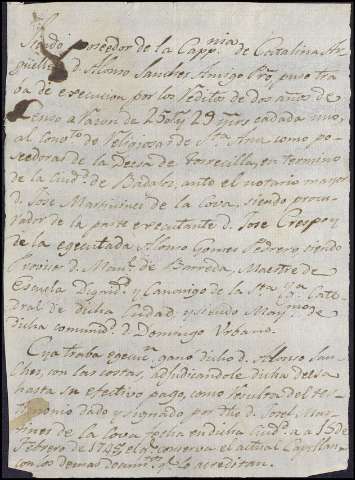 Siendo poseedor de la Capp.nia de Catalina Ar
guelles D. Alonso Sanches Amigo Pro, puso tra
va de execucion por los Reditos de dos años de
Censo a razon de 23 Rs y 29 mrs cada uno,
al Conv.to de Religiosas de Sta Ana como po-
seedoras de la Deesa de Torrecilla, en termino
de la Ciud.d de Badaxoz, ante el notario mayor
D. Jose Martines de la Cova, siendo procu-
rador de la parte executante D. Jose Crespo y
de la egecutada Alonso Gomes Pedrero, siendo
Provisor D. Man.l de Barreda, Maestre de
Escuela Dignid.d y Canonigo de la Sta Yga Cate-
dral de dicha Ciudad y siendo May.mo de
dicha comunid.d D. Domingo Urbano.
Cuya traba egecu.n gano dicho D. Alonso San-
ches, con las costas, adjudicandole dicha deesa
hasta su efectivo pago, como resulta del tes-
timonio dado y signado por dho D. Josef Mar-
tines de la Cova fecha en dicha Ciud.d a 15 de
Febrero de 1745, el q.e conserva el actual Capellan
con los demas docum.tos q.e lo acreditan.